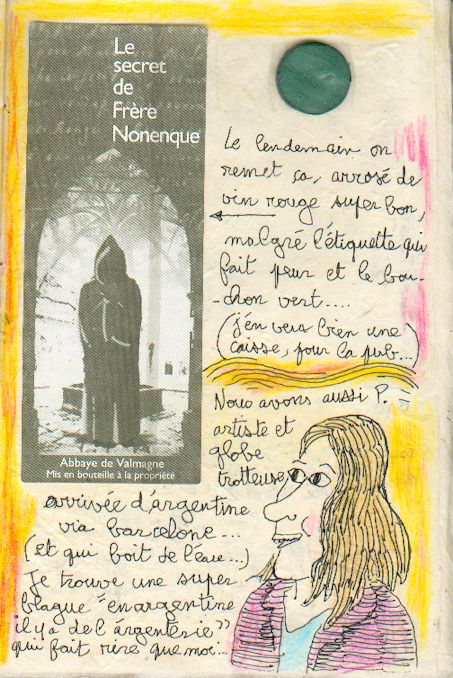 Le
secret
de
Frère
Nonenque
Abbaye de Valmagne
Mis en bouteille à la propriété
Le lendemain on
remet ça, arrosé de
vin rouge super bon,
malgré l'étiquette qui
fait peur et le bou-
-chon vert....
(j'en veux bien une
caisse, pour la pub...)
Nous avons aussi P. =
artiste et
globe
trotteuse
arrivée d'argentine
via barcelone...
(et qui boit de l'eau...)
Je trouve une super
blague "en argentine
il y a de l'argenterie"
qui fait rire que moi!..